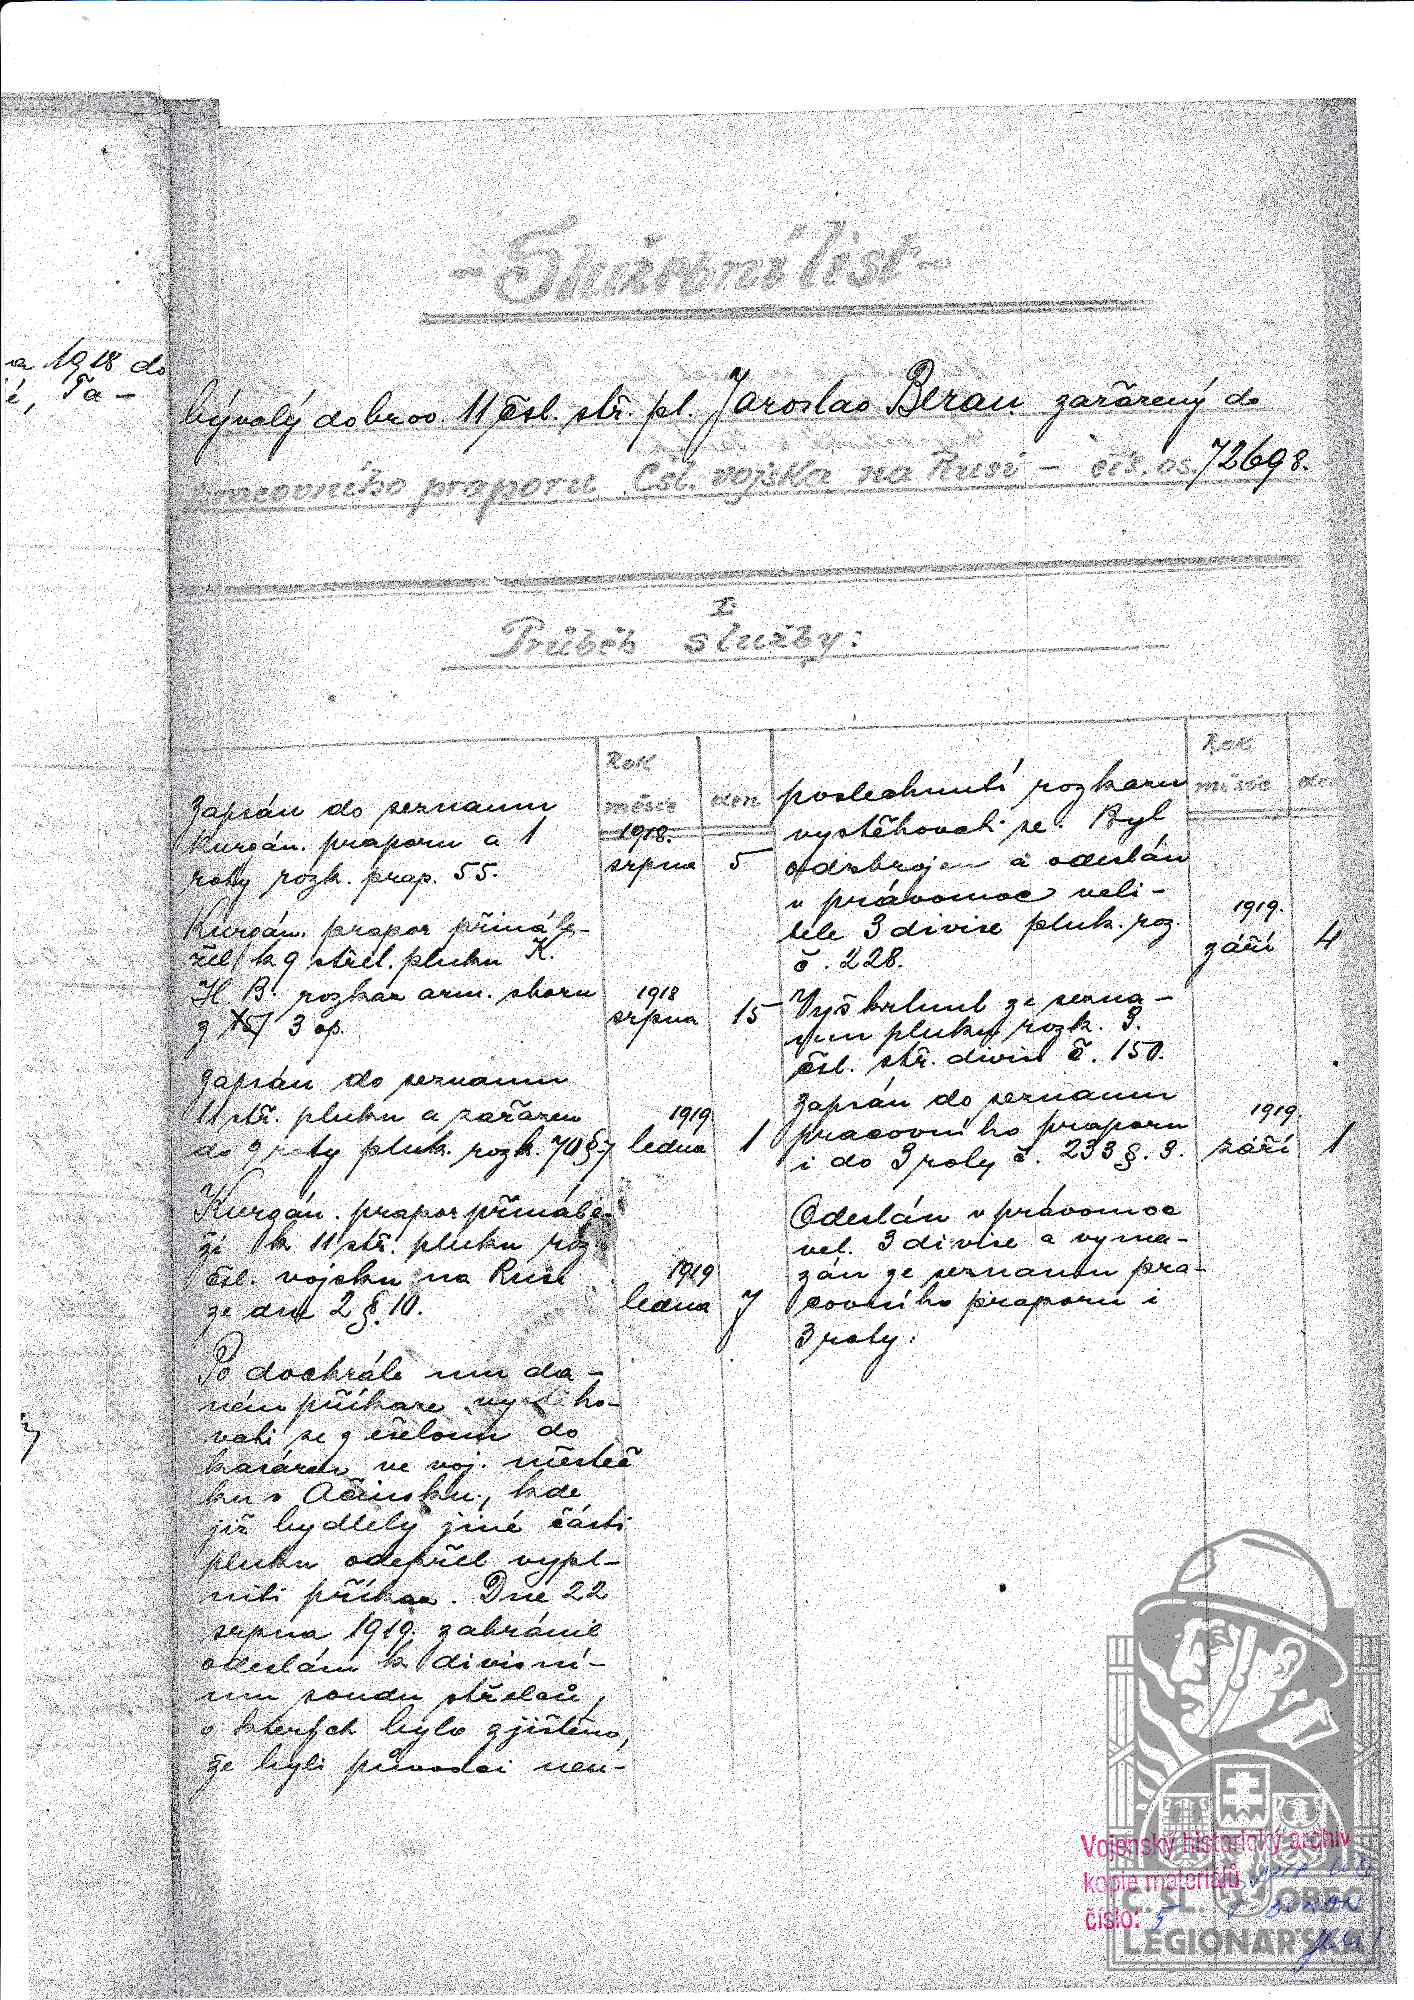 - Služební list -
bývalý dobrov. 11 čsl. stř. pl. Jaroslav Beran zařazený do
pracovního praporu Čsl. vojska na Rusi - čís. os. 72698.
I.
Průběh služby:
Rok
měsíc
den
Zapsán do seznamu
Kurgán. praporu a 1
roty rozk. prap. 55.
1918.
srpna 5
Kurgán. prapor přinále-
žel k 9 střel. pluku K.
H. B. rozkaz arm. sboru
3 op.
1918
srpna 15
Zapsán do seznamu
11 stř. pluku a zařazen
do 9 roty pluk. rozk. 70 §. 7
1919
ledna 1
Kurgán. prapor přinále-
ží k 11 stř. pluku roz.
čsl. vojsku na Rusi
ze dne 2 §. 10.
1919
ledna 7
Po dvakráte mu da-
ném příkaze vystěho-
vati se z ešelonu do
kasáren ve voj. městeč
ku v Ačinsku, kde
již bydlely jiné části
pluku odepřel vypl-
niti příkaz. Dne 22
srpna 1919. zabránil
odeslání k divisní-
mu soudu střelců,
o kterých bylo zjištěno,
že byli původci neu-
Rok
měsíc
den
poslechnutí rozkazu
vystěhovati se. Byl
odzbrojen a odeslán
v právomoc veli-
tele 3 divise pluk. roz.
č. 228.
1919.
září 4
Vyškrtnut ze sezna-
mu pluku rozk. 3.
čsl. stř. divise č. 150.
Zapsán do seznamu
pracovního praporu
i do 3 roty č. 233 §. 3.
1919.
září 1
Odeslán v právomoc
vel. 3 divise a vyma-
zán ze seznamu pra-
covního praporu i
3 roty.
a 1918 do
é, Ta-
Vojenský historický archiv
kopie materiálů
číslo: 5
Č. SL. OBEC
LEGIONÁŘSKÁ